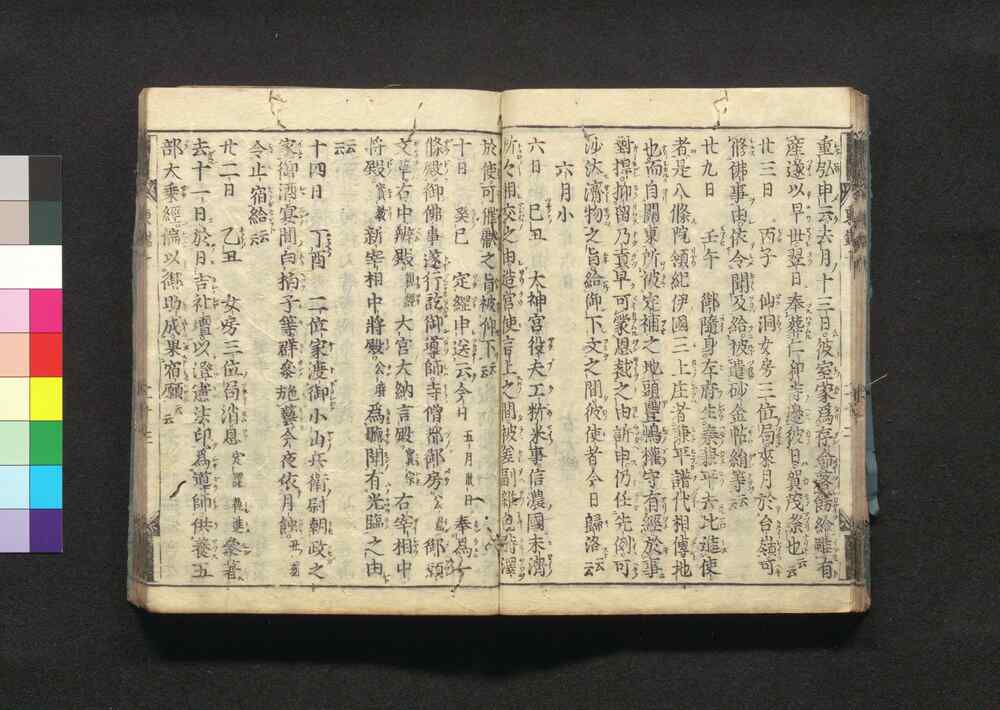 重弘申云去月十三日彼室家為存命落飾給雖有
遂以早世翌日奉葬仁和寺邊彼日賀茂祭也云云
廿三日 丙子 仙洞女房三位局來月於台嶺可
修佛事由依令聞及給被遣砂金帖絹等云云
廿九日 壬午 御隨身左府生秦兼平去比進使
者是八條院領紀伊國三上庄者兼平譜代相傳地
也而自關東所被定補之地頭豊嶋權守有經於事
對捍抑留乃貢早可蒙恩裁之由訴申仍任先例可
沙汰濟物之旨給御下文之間彼使者今日歸洛云云
六月小
六日 己丑 大神宮役夫工粉米事信濃國未濟
所々相交之由造宮使言上之間被差副雜色時澤
於使可催獻之旨被仰下云云
十日 癸巳 定經申送云今日五月卅日奉為
將殿御佛事遂行說御導師寺僧都御房公御布施
文章右中辨殿 大宮大納言殿實家右宰相中
將殿實新宰相中將殿公為聽聞有光臨之由
云云
十四日 丁酉 二位家渡御小山兵衛尉朝政之
家御酒宴間白拍子等群參施藝今夜依月蝕
令止宿給云云
廿二日 乙丑 女房三位局消息定經執進參著
去十一日於日吉社壇以澄憲法印為導師供養五
部大乘經偏以御助成果宿願云云